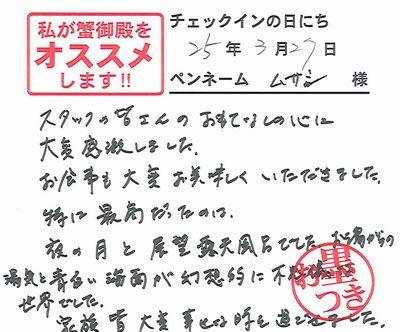 私が蟹御殿を
オススメ
します!!
チェックインの日にち
25年3月27日
ペンネーム ムサシ 様
スタッフの皆さんの おもてなしの心に
大変感激しました。
お食事も大変お美味しくいただきました。
特に最高だったのは、
夜の月と展望露天風呂でした
湯気と青白い海面が幻想的に
世界でした。
家族皆大変幸せな時を過ごせました。
お墨つき